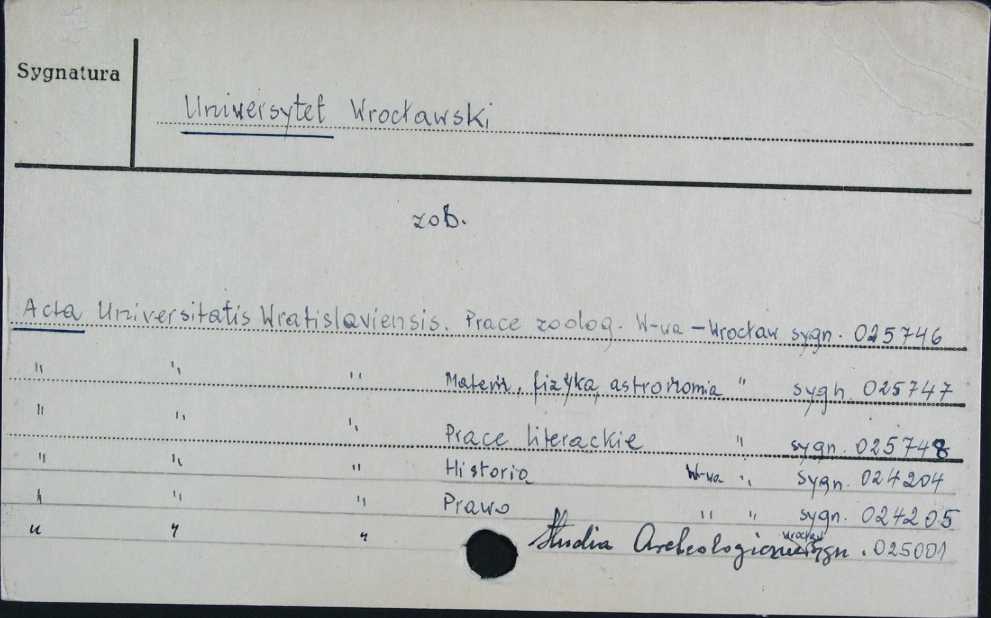 Sygnatura
Uniwersytet Wrocławski
zob.
Acta Universitatis Wratislaviensis. Prace zoolog. W-wa – Wrocław sygn. 025746
" " " Matem., fizyka, astronomia " sygn. 025747
" " " Prace literackie " sygn. 025748
" " " Historia W-wa " sygn. 024204
" " " Prawo " " sygn. 024205
" " " Studia Archeologiczne Wrocław sygn. 025001